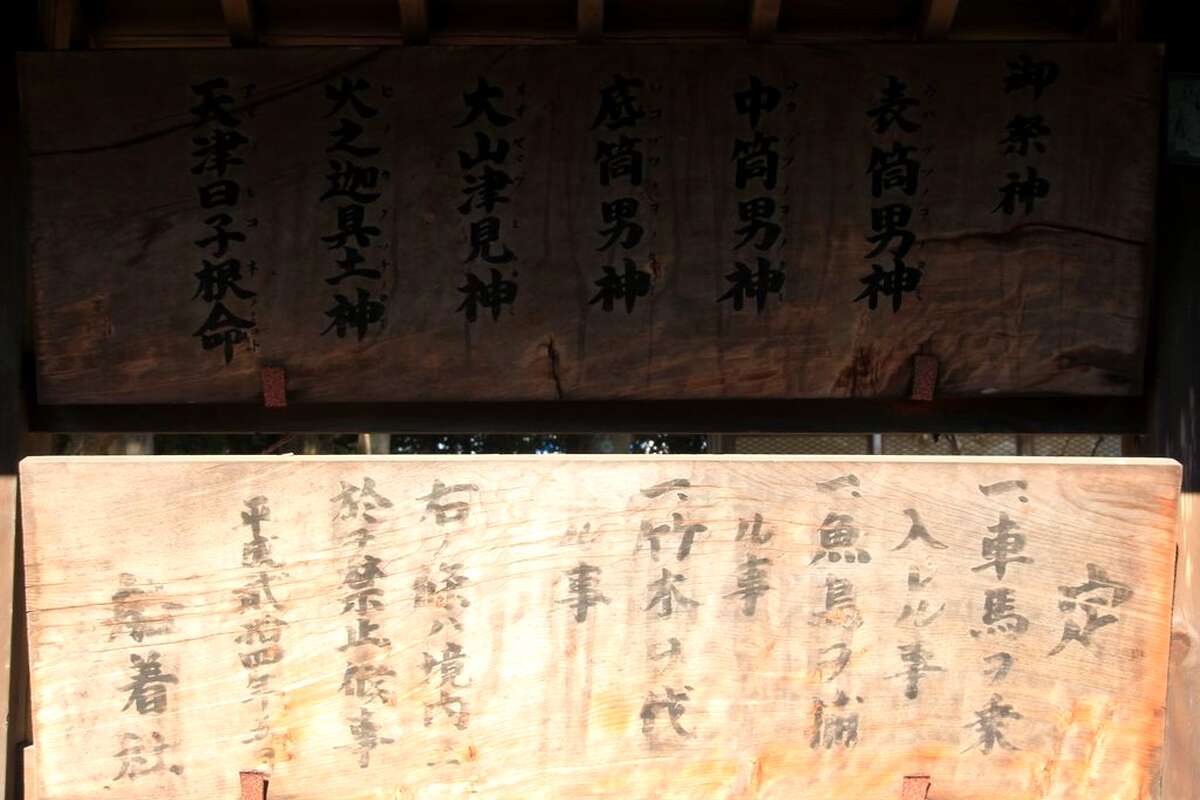 御祭神
表筒男神
中筒男神
底筒男神
大山津見神
火之迦具土神
天津日子根命
定
一、車馬ヲ乗
入レル事
一、魚鳥ヲ捕
ル事
一、竹木ヲ伐
ル事
右ノ條八境内ニ
於テ禁止候事
平成貳拾四年五
船着社